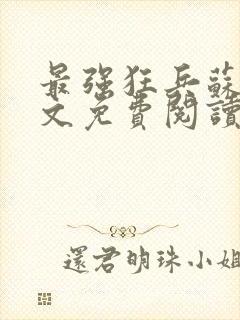 最强狂兵蘇
文免費閱讀
還君明珠小姐